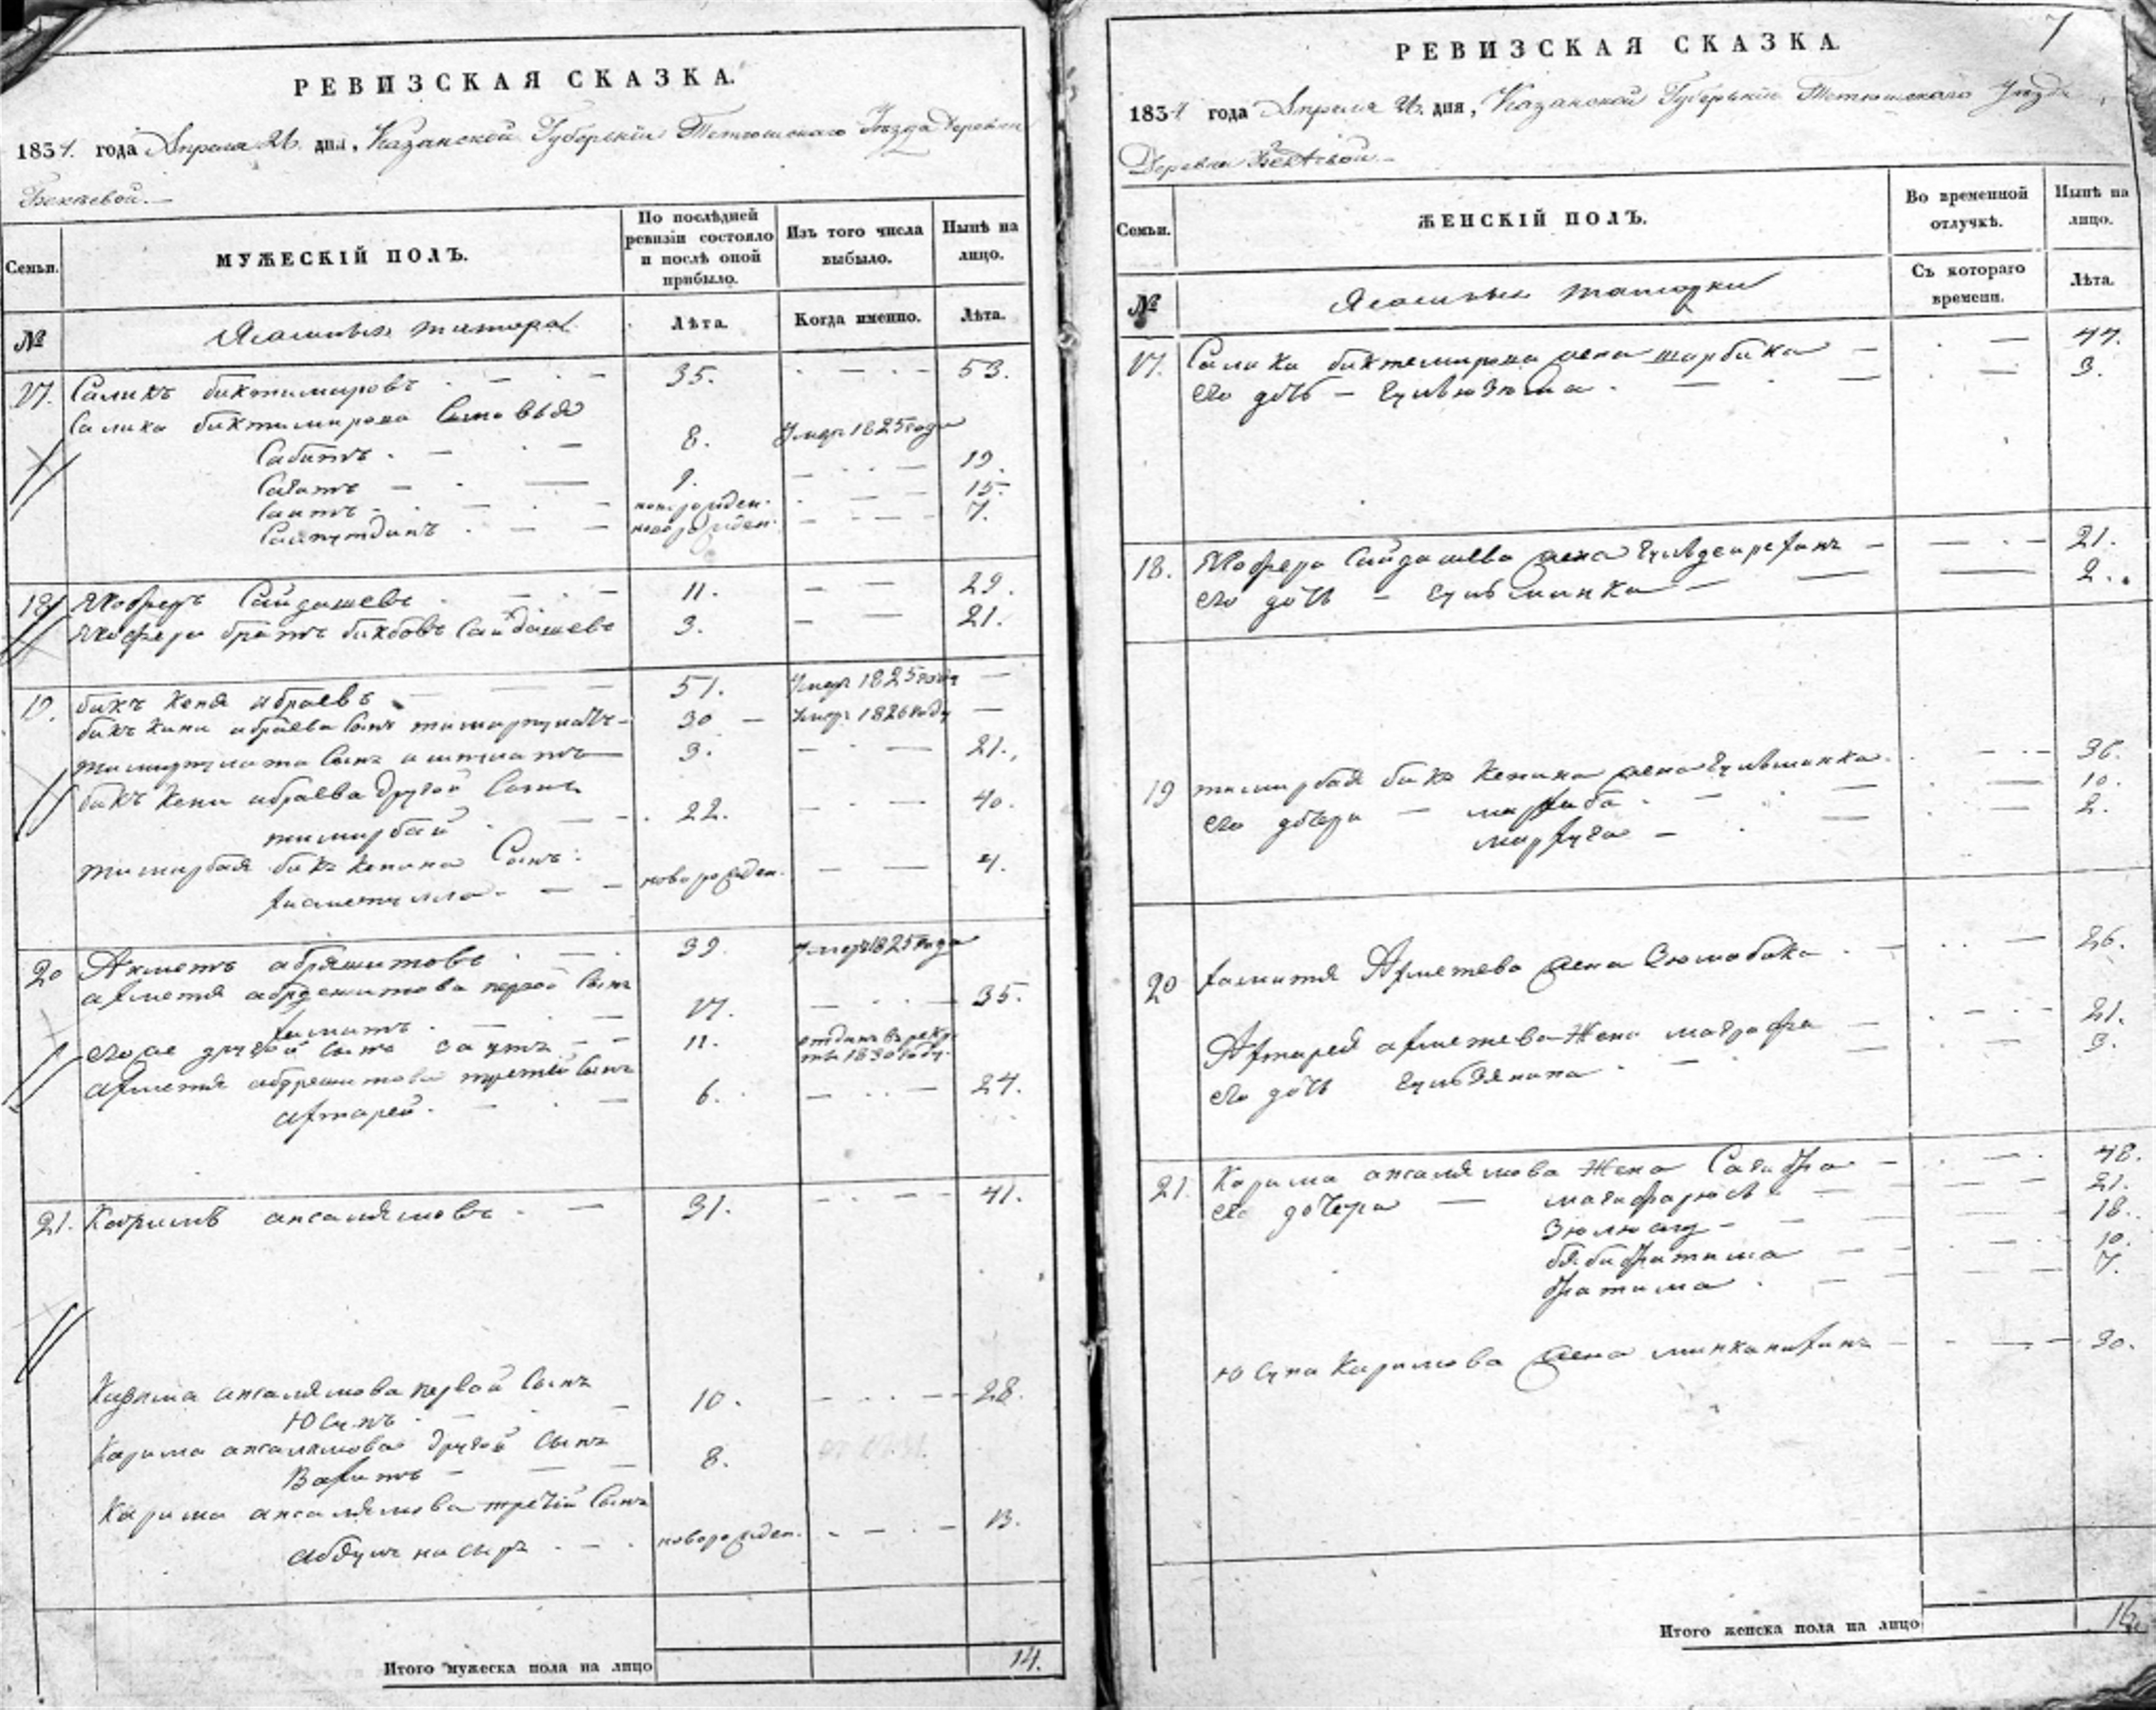 РЕВИЗСКАЯ СКАЗКА.
1834. года Апреля 26. дня, Казанской Губернiи Тетюшскаго Уѣзда Деревни
Бектѣевой.—
Семьи.
МУЖЕСКIЙ ПОЛЪ.
По послѣдней ревизiи состояло и послѣ оной прибыло.
Изъ того числа выбыло.
Нынѣ на лицо.
№
Ясашныхъ татаръ
Лѣта.
Когда именно.
Лѣта.
17. Саликъ биктимировъ 35. 53.
Салика биктимирова Сыновья
Сабитъ 8. Умеръ 1825 года
Сагатъ 1. 19.
Саитъ новорожден. 15.
Сайпутдинъ новорожден. 7.
18. Жофяръ Сайдашевъ 11. 29.
Жофяра братъ бикбовъ Сайдашевъ 3. 21.
19. бикъ Кеня ибраевъ 51. Умеръ 1825 года
бикъ Кини ибраева Сынъ тимирпулатъ 30 Умеръ 1826 году
тимирпулата Сынъ 3. 21.
бикъ Кени ибраева другой Сынъ
тимирбай 22. 40.
тимирбая бикъ Кенина Сынъ:
новорожден. 4.
20 Ахметъ абряшитовъ 39. Умеръ 1825 года
ахметя абряшитова первой Сынъ
хамитъ 17. 35.
его же другой Сынъ Заитъ 11. отданъ въ рекр. 1830 году.
ахметя абряшитова третей Сынъ
ахтарей 6. 24.
21. Каримъ ансалямовъ 31. 41.
Карима ансалямова первой Сынъ
Юсупъ 10. 28.
Карима ансалямова другой Сынъ
Вахитъ 8.
Карима ансалямова третiй Сынъ
абдулъ насыръ новорожден. 13.
Итого мужеска пола на лицо 14.
7
РЕВИЗСКАЯ СКАЗКА.
1834 года Апреля 26. дня, Казанской Губернiи Тетюшскаго Уѣзда
Деревни Бектѣевой.—
Семьи.
ЖЕНСКIЙ ПОЛЪ.
Во временной отлучкѣ.
Нынѣ на лицо.
№
Ясашныхъ татарки
Съ котораго времени.
Лѣта.
17. Салика биктемирова жена шарбика 44.
его дочь — Гульюзюма 3.
18. Жофяра Сайдашева жена 21.
его дочь — Гульминка 2.
19 тимирбая бикъ Кенина жена Гульминка 36.
его дочери — мархаба 10.
мархуга 2.
20 хамитя Ахметева жена Зюмабика 26.
Ахтарея ахметева Жена магрофа 21.
его дочь Гульзянина 3.
21. Карима ансалямова Жена Сагифа 48.
его дочери — 21.
18.
бибифатима 10.
фатима 7.
Юсупа Каримова жена 30.
Итого женска пола на лицо 16.